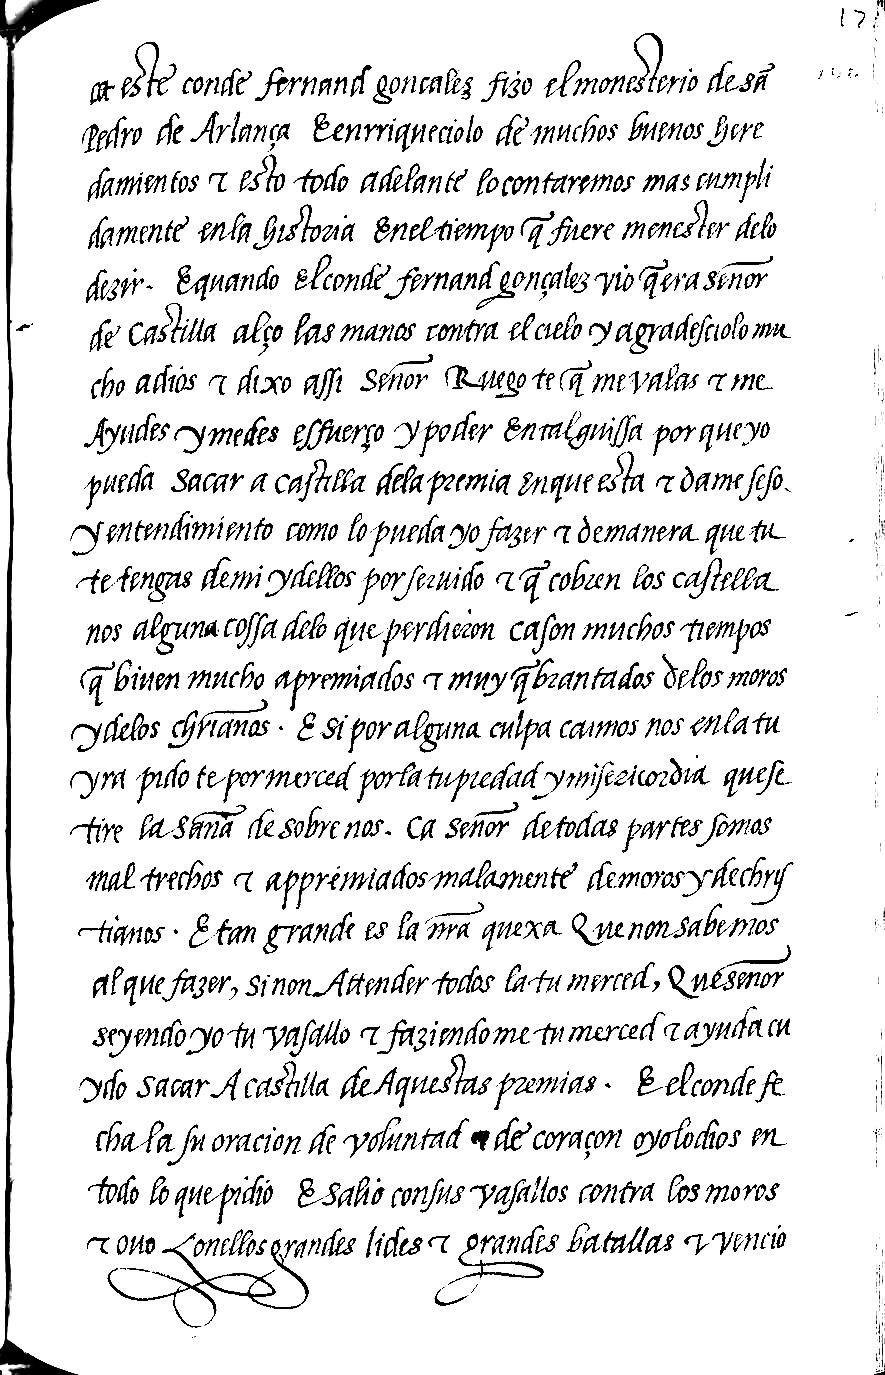 17
et este conde fernand goncalez fizo el monesterio de sã
Pedro de Arlança E enrriqueciolo de muchos buenos here
damientos τ esto todo adelante lo contaremos mas cumpli
damente enla historia Enel tiempo q̃ fuere menester delo
dezir. E quando El conde fernand gonçalez vio q̃ era señor
de Castilla alço las manos contra el cielo y agradesciolo mu
cho adios τ dixo assi Señor Ruego te q̃ me valas τ me
Ayudes y me des essfuerço y poder En tal guissa por que yo
pueda Sacar a Castilla dela premia En que esta τ dame seso.
y entendimiento como lo pueda yo fazer τ de manera que tu
te tengas demi y dellos por seruido τ q̃ cobren los castella
nos alguna cossa delo que perdieron Ca son muchos tiempos
q̃ biuen mucho apremiados τ muy q̃brantados de los moros
y delos chr̃ianos. E si por alguna culpa caimos nos enla tu
yra pido te por merced por la tu piedad y misericordia que se
tire la Saña de sobre nos. Ca Señor de todas partes somos
mal trechos τ appremiados malamente de moros y de chrys
tianos. E tan grande es la nr̃a quexa Que non sabemos
al que fazer, si non Attender todos la tu merced, Que señor
seyendo yo tu vasallo τ faziendo me tu merced τ ayuda cu
ydo Sacar A castilla de Aquestas premias. E el conde fe
cha la su oracion de voluntad de coraçon oyolo dios en
todo lo que pidio E salio con sus vasallos contra los moros
τ ouo Con ellos grandes lides τ grandes batallas τ vencio